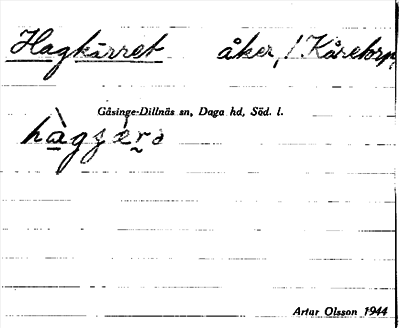 Hagkärret åker, / Kåretorp,
Gåsinge-Dillnäs sn, Daga hd, Söd. l.
Artur Olsson 1944